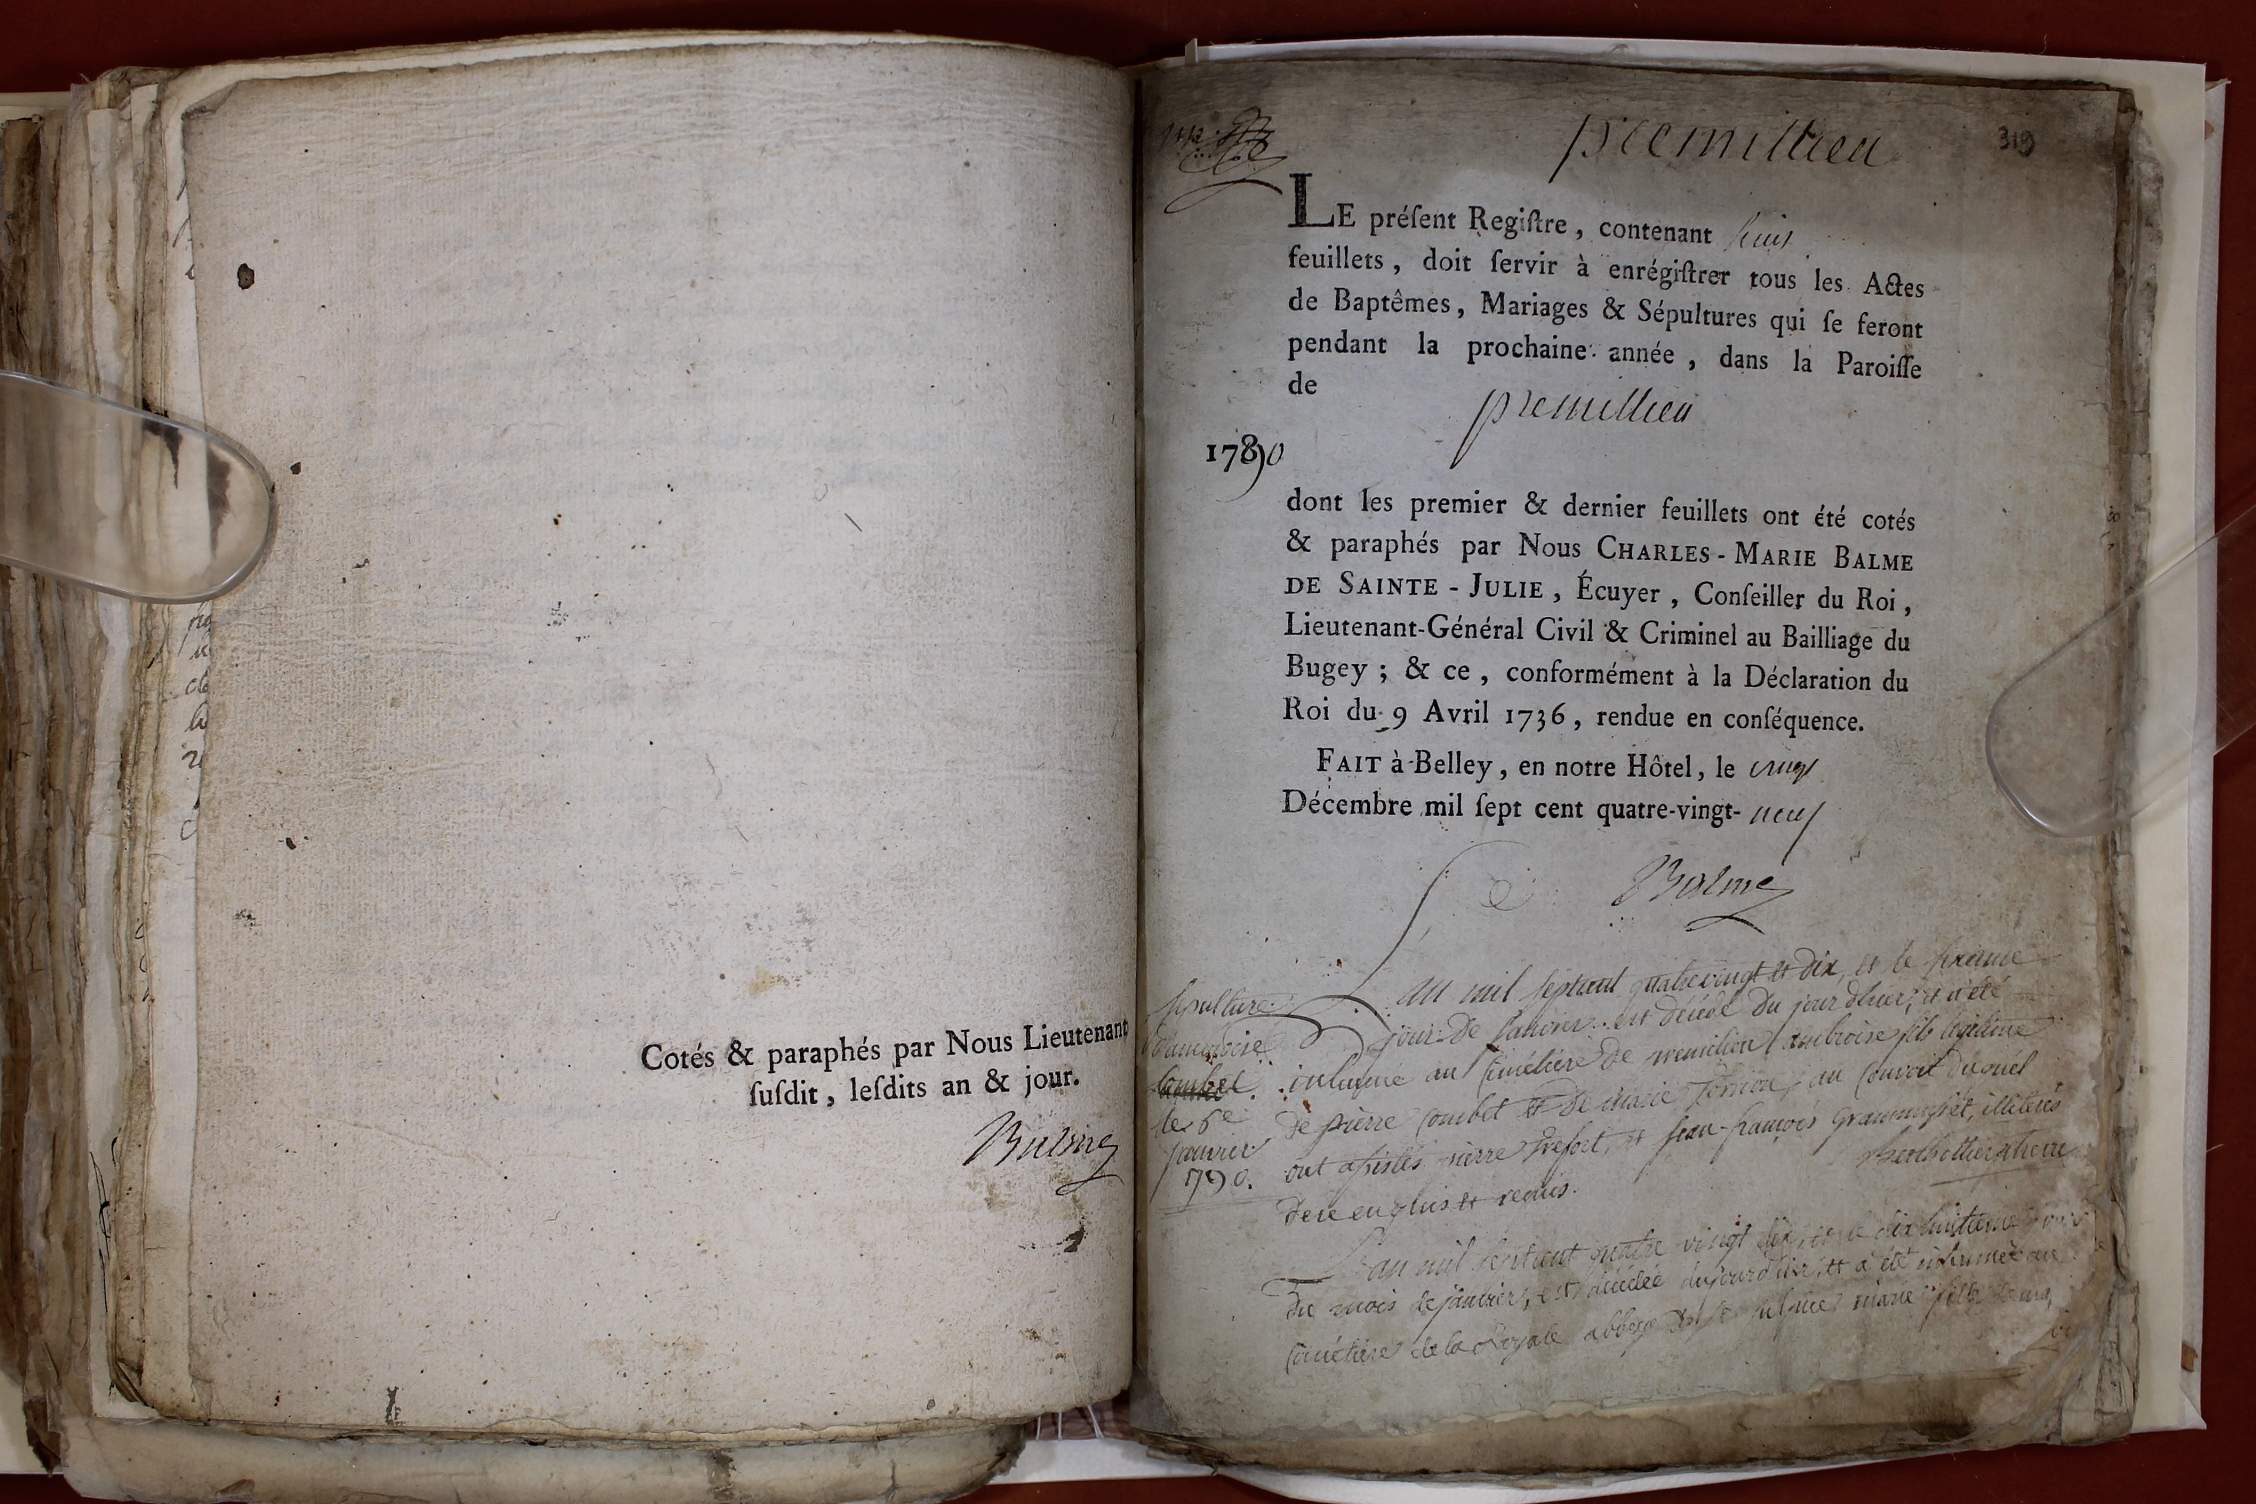 Cotés & paraphés par Nous Lieutenant
ſuſdit, leſdits an & jour.
Balme
premillieu
319
LE préſent Regiſtre, contenant huit
feuillets, doit ſervir à enrégiſtrer tous les Actes
de Baptêmes, Mariages & Sépultures qui ſe feront
pendant la prochaine année, dans la Paroiſſe
de
premillieu
1790
dont les premier & dernier feuillets ont été cotés
& paraphés par Nous CHARLES-MARIE BALME
DE SAINTE-JULIE, Écuyer, Conſeiller du Roi,
Lieutenant-Général Civil & Criminel au Bailliage du
Bugey; & ce, conformément à la Déclaration du
Roi du 9 Avril 1736, rendue en conſéquence.
FAIT à Belley, en notre Hôtel, le vingt
Décembre mil ſept cent quatre-vingt-neuf
Balme
sepulture
d'ambroise
combet
le 6e
janvier
1790.
L'an mil septcent quatrevingt et dix, et le sixieme
jour de janvier est décédé du jour d'hier, et a été
inhumé au cimétiere de premilieu ambroise fils légitime
de pierre combet et de marie au convoit duquel
ont assistés pierre et jean-françois illiterés
de ce enquis et requis.
L'an mil septcent quatre vingt dix, et le dix huitieme
du mois de janvier, est décédée du jour d'hier, et a été inhumée au
cimétiere de la Royale abbaye marie fille